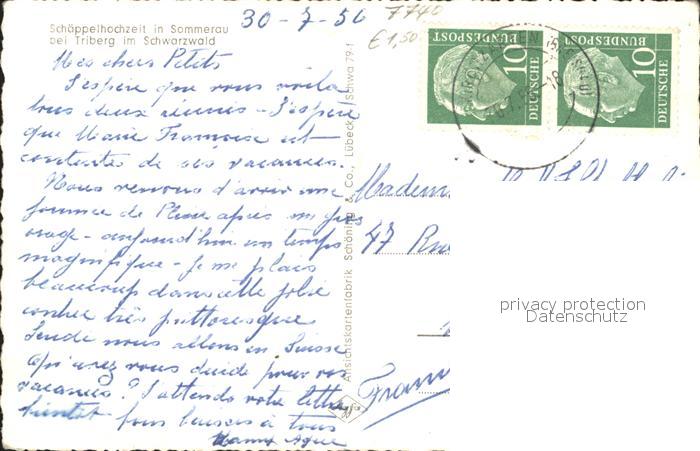 30-7-56
Schäppelhochzeit in Sommerau
bei Triberg im Schwarzwald
€1,50
10
DEUTSCHE
BUNDESPOST
10
DEUTSCHE
BUNDESPOST
Mes chers Petits
J'espère que vous voilà
tous deux réunis - J'espère
que Marie Françoise est
contente de ses vacances.
Nous venons d'avoir une
journée de Pluie après un gros
orage - aujourd'hui un temps
magnifique - je me plais
beaucoup dans cette jolie
contrée très pittoresque
Lundi nous allons en Suisse
Qu'avez vous décidé pour vos
vacances? J'attends votre lettre
bientôt bons baisers à tous
Ansichtskartenfabrik Schöning & Co., Lübeck
Schwa 791
Madem
47 Ru
Fran
privacy protection
Datenschutz